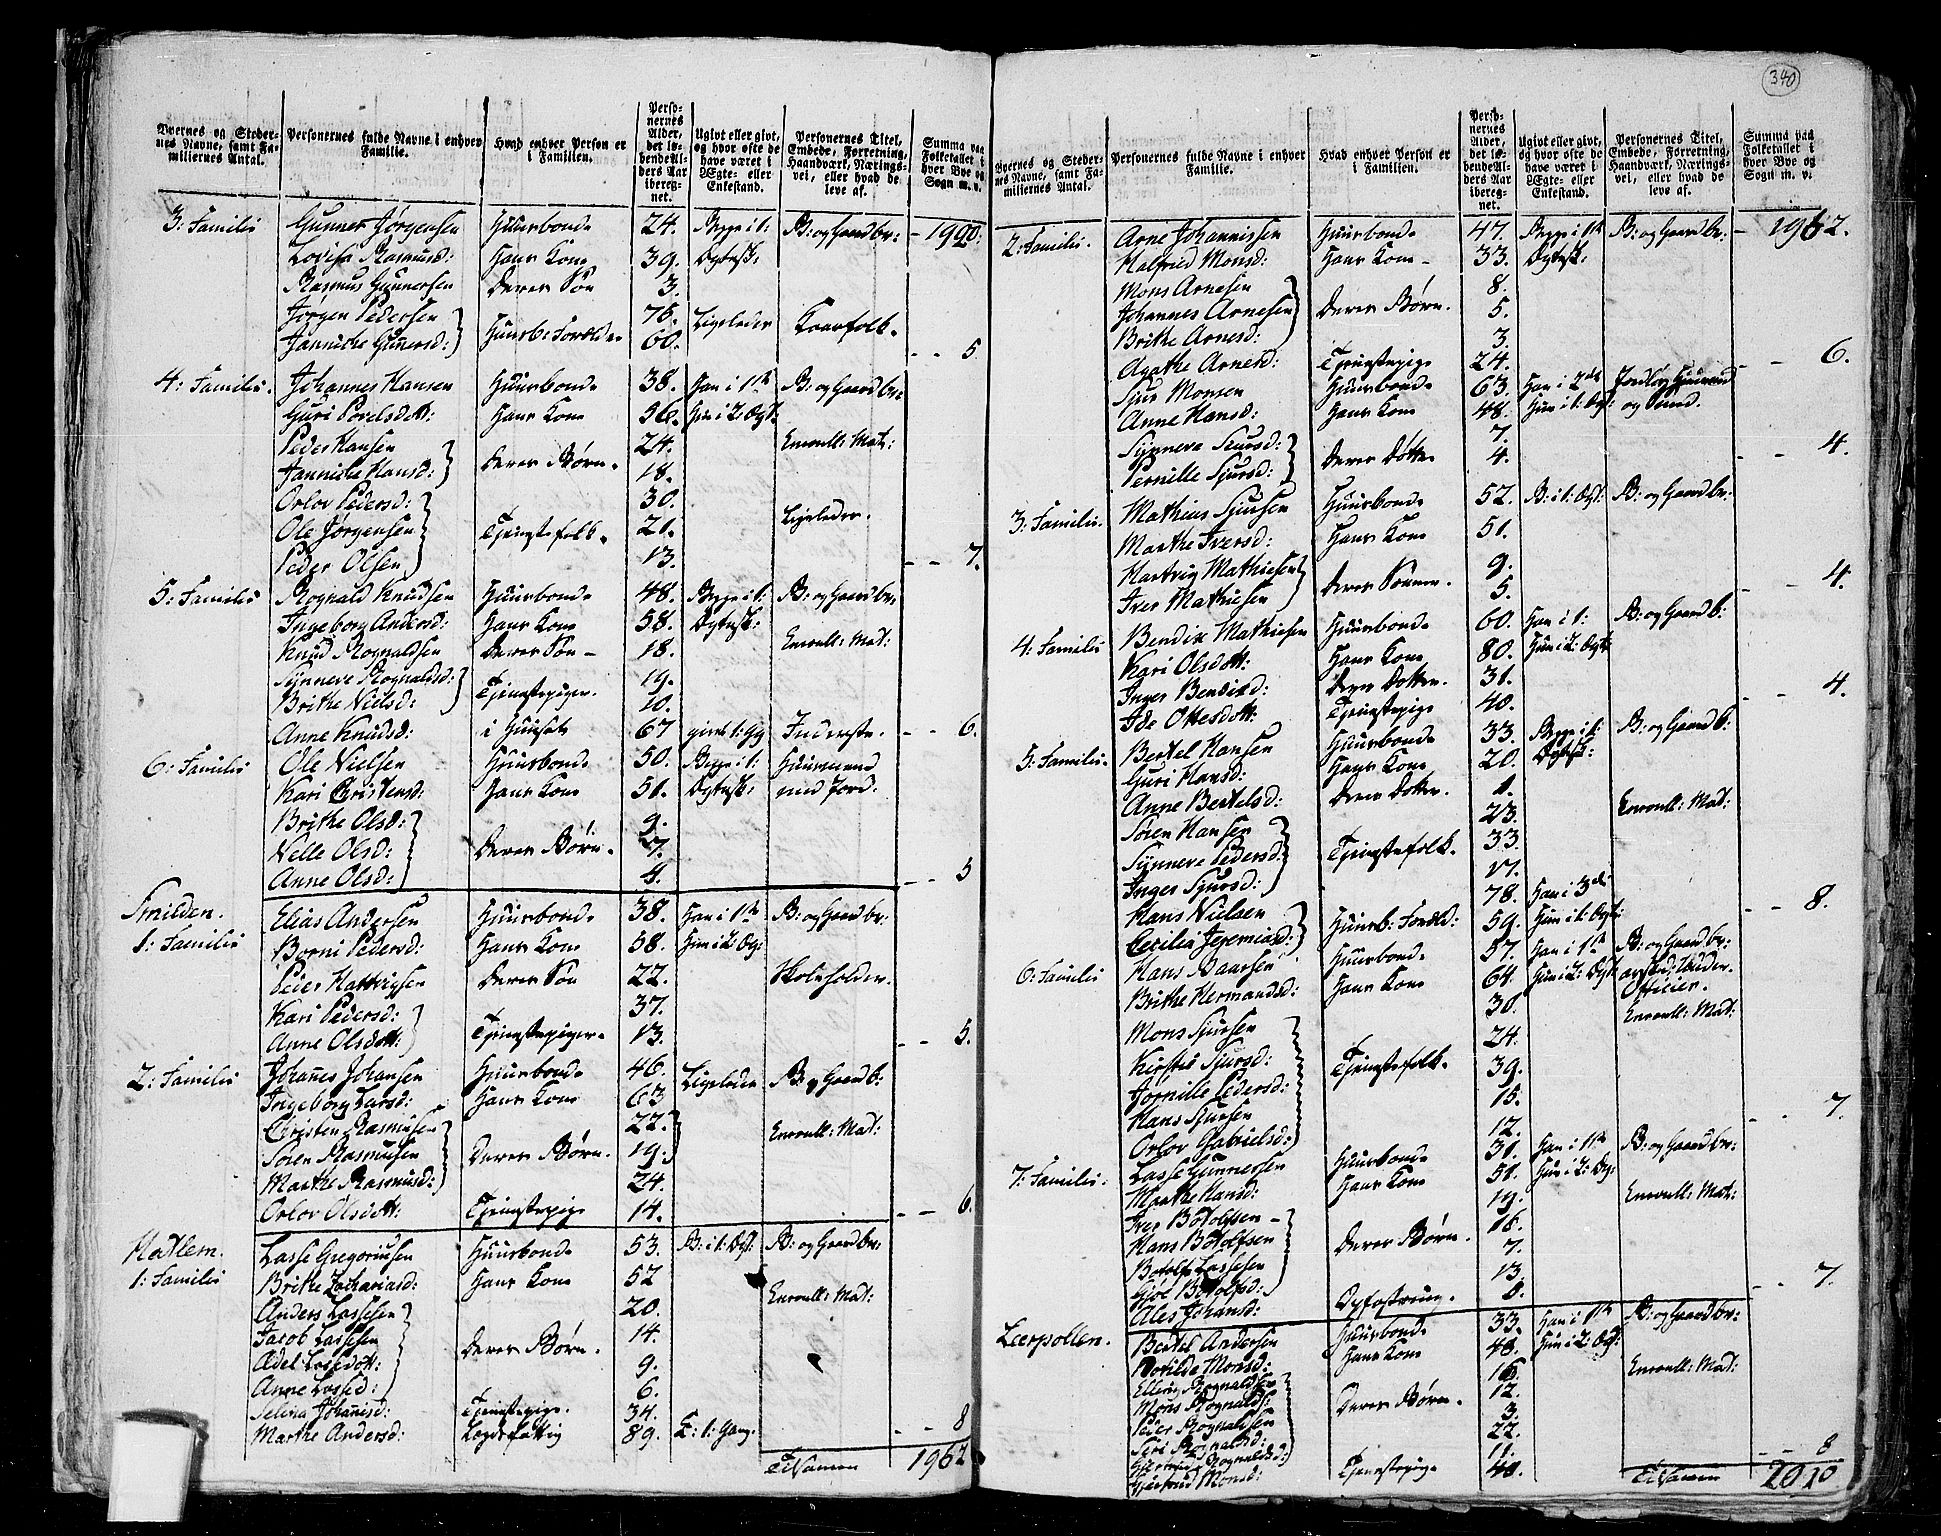 340
Byernes og Stedernes Navne, samt Familiernes Antal.
Personernes fulde Navne i enhver Familie.
Hvad enhver Person er i Familien.
Personernes Alder, det løbende Alders Aar iberegnet.
Ugivt eller givt, og hvor ofte de have været i Ægte- eller Enkestand.
Personernes Titel, Embede, Forretning, Haandværk, Næringsvei, eller hvad de leve af.
Summa paa Folketallet i hver Bye og Sogn m. v.
3: Famili Gunner Jørgensen Huusbonde 24. Begge i 1: B: og Gaardbr: 1920.
Lovisa Rasmusd: Hans Kone 39. Ægtesk:
Rasmus Gunnersen Deres Søn 3.
Jørgen Pedersen 76. Ligeledes Kaarfolk.
Jannicke Guners d: Huusb: Forældre 60. 5
4: Famili. Johannes Hansen Huusbonde 38. Han i 1te B: og Gaardbr:
Guri Povelsdatt: Hans Kone 56. Hun i 2: Ægt:
Peder Hansen 24. Enroull: Mat:
Jannicke Hansd: Deres Børn. 18.
Orlov Pedersd: 30.
Ole Jørgensen Tjenestefolk. 21. Ligeledes.
Peder Olsen 13. 7.
5: Famili Rognald Knudsen Huusbonde 48. Begge i 1: B: og Gaardbr:
Ingeborg Andersd: Hans Kone 58. Ægtesk:
Knud Rognaldsen Deres Søn 18. Enroull: Mat:
Synneve Rognaldsd: 19.
Brithe Nielsd: Tjenestepiger. 10.
Anne Knudsd: i Huuset 67 givt 1: Gg Inderste. 6.
6: Famili Ole Nielsen Huusbonde 50. Begge i 1: Huusmand
Kari Christensd: Hans Kone 51. Ægtesk: med Jord.
Brithe Olsd: 9.
Nelle Olsd: Deres Børn. 7.
Anne Olsd: 4. 5
Smilden.
1: Famili Elias Andersen Huusbonde 38. Han i 1te B: og Gaardbr:
Borni Pedersd: Hans Kone 58. Hun i 2: Æg:
Peder Hartvigsen Deres Søn 22. Skoleholder.
Kari Pedersd: 37.
Anne Olsdatt: Tjenestepiger. 13. 5.
2: Famili Johanes Johansen Huusbonde 46. Ligeledes B: og Gaardb:
Ingeborg Larsd: Hans Kone 63
Christen Rasmusen 22. Enroull: Mat:
Søren Rasmusen Deres Børn. 19.
Marthe Rasmusd: 24.
Orlov Olsdatt: Tjenestepige 14. 6.
Matlem.
1: Famili Lasse Gregoriusen Huusbonde 53. B: i 1: Ægt: B: og Gaardbr:
Brithe Zachariasd: Hans Kone 52
Anders Lassesen 20. Enroull: Mat:
Jacob Lassesen 14.
Adel Lassedatt: Deres Børn. 9.
Anne Lassed: 6.
Selina Johanisd: Tjenestepige. 34.
Marthe Andersd: Lægdsfattig 89. E: 1: Gang. 8
Tilsamen 1962
Byernes og Stedernes Navne, samt Familiernes Antal.
Personernes fulde Navne i enhver Familie.
Hvad enhver Person er i Familien.
Personernes Alder, det løbende Alders Aar iberegnet.
Ugivt eller givt, og hvor ofte de have været i Ægte- eller Enkestand.
Personernes Titel, Embede, Forretning, Haandværk, Næringsvei, eller hvad de leve af.
Summa paa Folketallet i hver Bye og Sogn m. v.
2: Famili. Arne Johannissen Huusbonde 47 Begge i 1te B: og Gaardbr: 1962.
Malfried Monsd: Hans Kone 33. Ægtesk:
Mons Arnesen 8.
Johannes Arnesen Deres Børn. 5.
Brithe Arnesd: 3.
Agathe Arnesd: Tjenestepige 24. 6.
Sjur Monsen Huusbonde 63. Han i 2den Jordløs Huusmand
Anne Hansd: Hans Kone 48. Hun i 1: Ægt:
Synneve Siursd: 7.
Pernille Sjursd: Deres Døttre 4. 4.
3: Famili. Mathias Sjursen Huusbonde 52. B: i 1: Ægt: B: og Gaardbr:
Marthe Iversd: Hans Kone 51.
Hartvig Mathiesen 9.
Iver Mathiesen Deres Sønner. 5. 4.
4: Famili Bendix Mathiesen Huusbonde 60. Han i 1: B: og Gaardb:
Kari Olsdatt: Hans Kone 80. Hun i 2: Ægt:
Inger Bendixd: Deres Dotter. 31.
Ide Ottesdatt: Tjenestepige 40. 4.
5: Famili. Bertel Hansen Huusbonde 33. Begge i 1: B: og Gaardb:
Guri Hansd: Hans Kone 20. Ægtesk:
Anne Bertelsd: Deres Dotter. 1.
Søren Hansen 23. Enroull: Mat:
Synneve Pedersd: Tjenestefolk. 33.
Inger Sjursd: 17.
Hans Nielsen 78. Han i 3die
Cecilia Jeremiasd: Huusb: Foræld: 59. Hun i 1: Ægt: 8.
6: Famili Hans Baarsen Huusbonde 57. Han i 1te B: og Gaardbr:
Brithe Hermandsd: Hans Kone 64. Hun i 2: Ægt: afsked: Under-Officier.
Mons Sjursen 30. Enroull: Mat:
Kirsti Sjursd: 24.
Jornille Pedersd: Tjenestefolk. 39.
Hans Sjursen 15.
Orlov Gabrielsd: 12. 7.
7: Famili. Lasse Gunnersen Huusbonde 31. Han i 1te B: og Gaardbr:
Marthe Hansd: Hans Kone 51. Hun i 2: Æg:
Iver Botolfsen 19. Enroull: Mat:
Hans Botolfsen 16.
Botolf Lassesen Deres Børn. 7.
Gjøe Botolfsd: 13.
Ales Johansd: Opfostring. 8. 7.
Leerpollen. Bertel Andersen Huusbonde 33. Han i 1te B: og Gaardbr:
Botilde Monsd: Hans Kone 48. Hun i 2: Æg:
Elling Rognaldsen 16. Enroull: Mat:
Mons Rognalds: 12.
Peder Rognaldsen Deres Børn. 3.
Siri Rognaldsd: 22.
Giertrud Rognaldsd: 11.
Gjertrud Monsd: Tjenestepige 40. 8
Tilsamen 2010